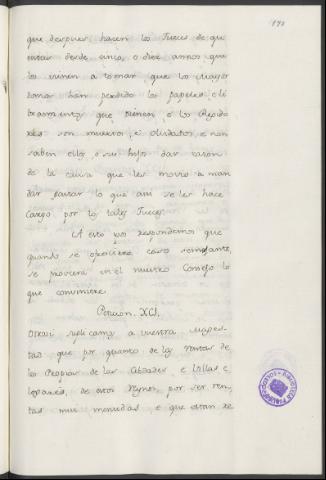 190
que despues hacen los Jueces de que
entrar desde cinco, o diez annos que
los vienen a tomar que los Mayor
domos han perdido los papeles, e li
bramientos que tienen, e los Rejido
res son muertos, e olvidados, e non
saben ellos, o sus hijos dar razon
de la causa que les movio a man
dar gastar lo que ansi se les hace
Cargo por los tales Jueces.
A esto vos respondemos que
quando se ofreciere caso semejante,
se proveera en el nuestro Consejo lo
que conviniere.
Peticion. XCI.
Otrosi suplicamos a vuestra Majes-
tad que por quanto de las rentas de
los Propios de las Cibdades e Villas e
Lugares, de estos Reynos, por ser ren-
tas mui menudas e que estan de